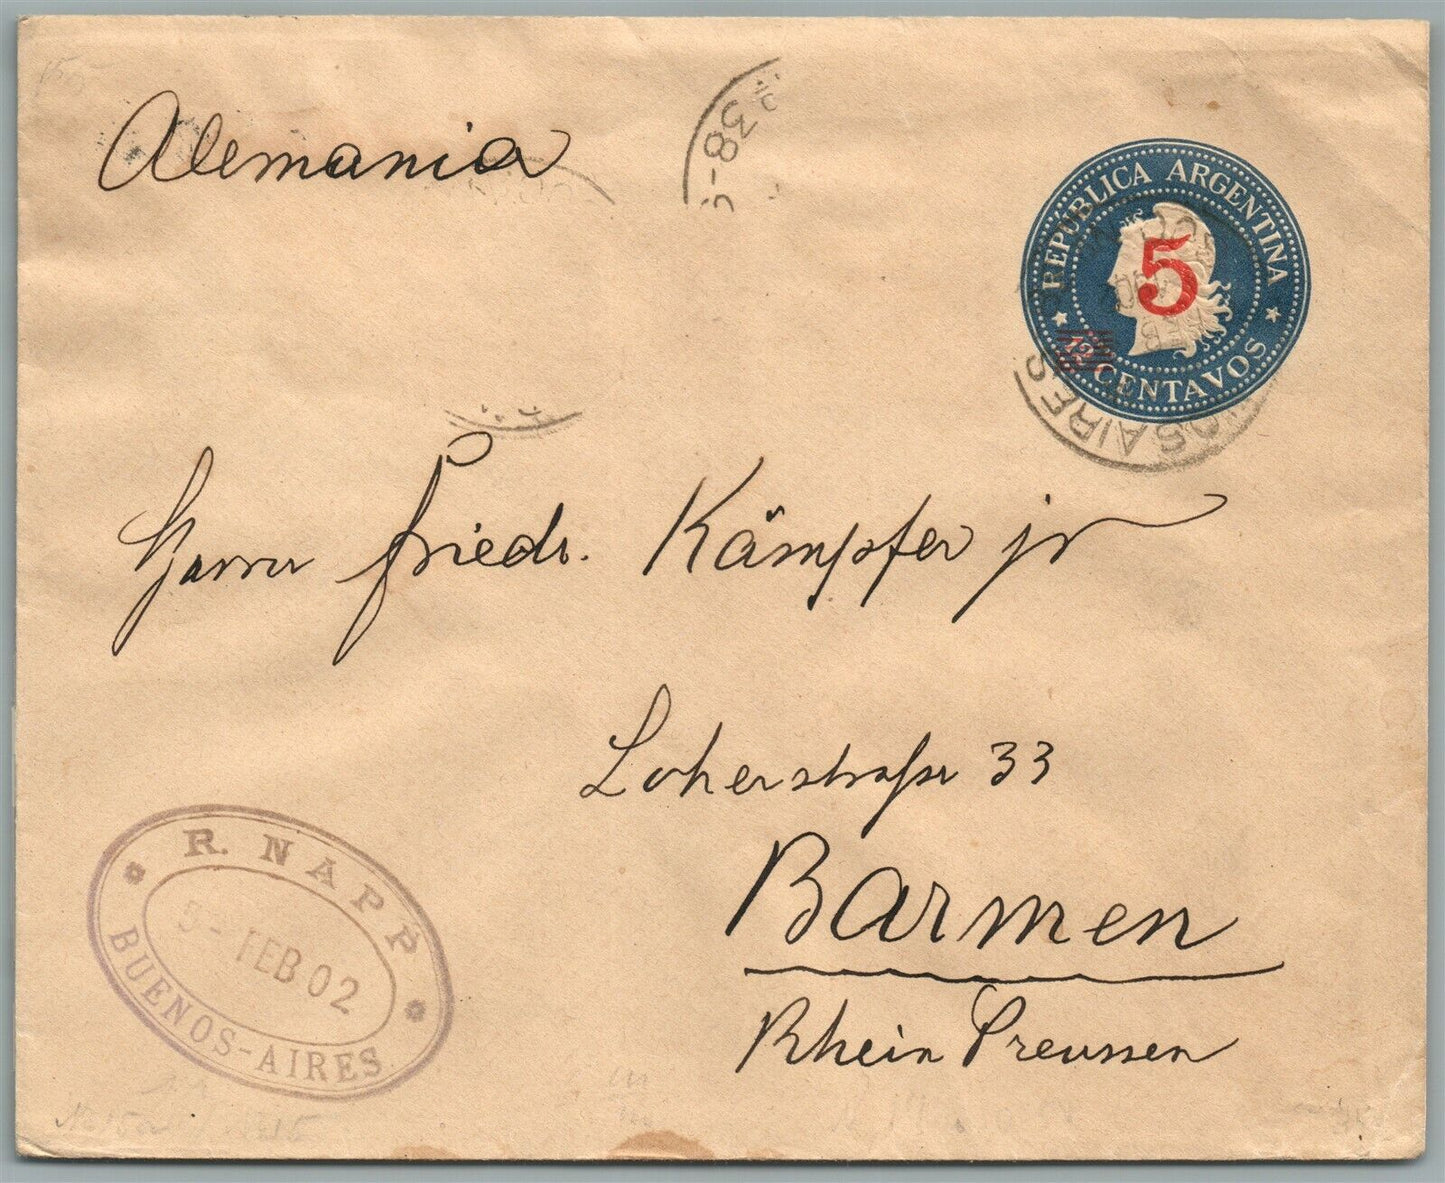 Alemania
38
REPÚBLICA ARGENTINA
5
12 CENTAVOS
OS AIRES
Herrn Friedr. Kämpfer jr
Loherstraße 33
Barmen
Rhein Preussen
R. NAPP
5 - FEB 02
BUENOS-AIRES